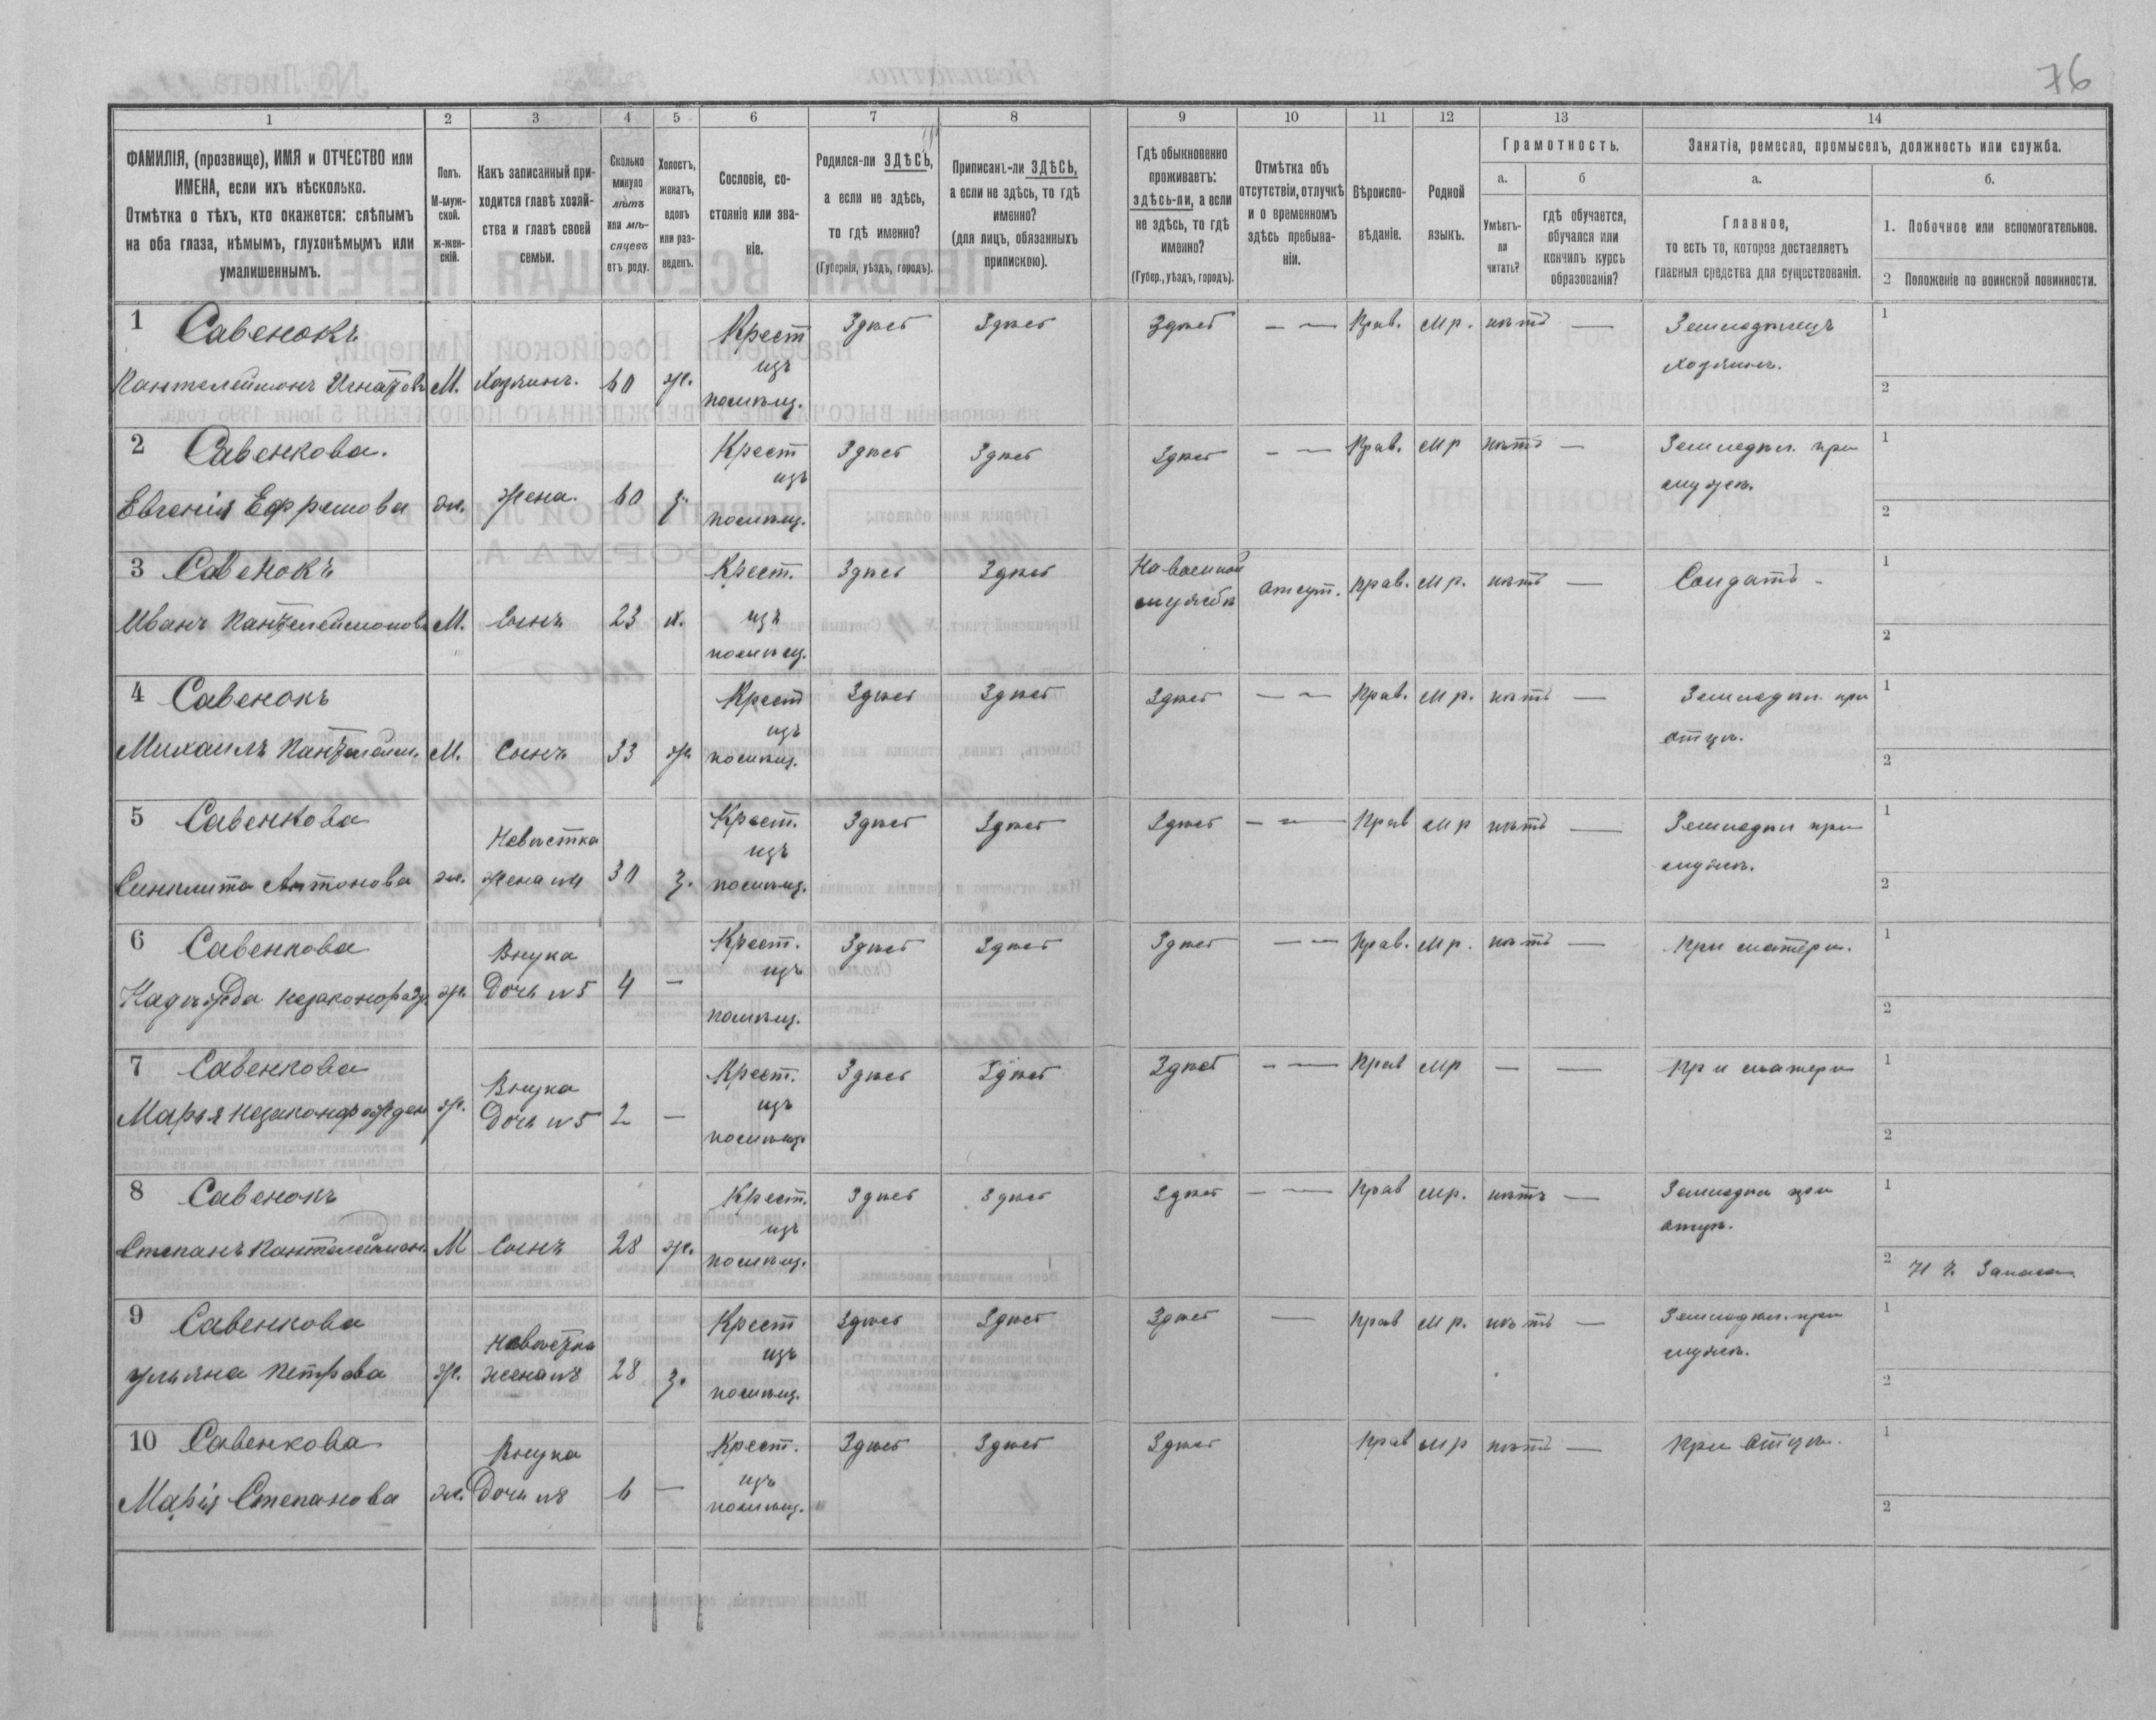 76
1 2 3 4 5 6 7 8 9 10 11 12 13 14
ФАМИЛІЯ, (прозвище), ИМЯ и ОТЧЕСТВО или
ИМЕНА, если ихъ нѣсколько.
Отмѣтка о тѣхъ, кто окажется: слѣпымъ
на оба глаза, нѣмымъ, глухонѣмымъ или
умалишеннымъ.
Полъ.
М-муж-
ской.
ж-жен-
скій.
Какъ записанный при-
ходится главѣ хозяй-
ства и главѣ своей
семьи.
Сколько
минуло
лѣтъ
или мѣ-
сяцевъ
отъ роду.
Холостъ,
женатъ,
вдовъ
или раз-
веденъ.
Сословіе, со-
стояніе или зва-
ніе.
Родился-ли ЗДѢСЬ,
а если не здѣсь,
то гдѣ именно?
(Губернія, уѣздъ, городъ).
Приписанъ-ли ЗДѢСЬ,
а если не здѣсь, то гдѣ
именно?
(для лицъ, обязанныхъ
припискою).
Гдѣ обыкновенно
проживаетъ:
здѣсь-ли, а если
не здѣсь, то гдѣ
именно?
(Губер., уѣздъ, городъ).
Отмѣтка объ
отсутствіи, отлучкѣ
и о временномъ
здѣсь пребыва-
ніи.
Вѣроиспо-
вѣданіе.
Родной
языкъ.
Грамотность.
а.
Умѣетъ-
ли
читать?
б
гдѣ обучается,
обучался или
кончилъ курсъ
образованія?
Занятіе, ремесло, промыселъ, должность или служба.
а.
Главное,
то есть то, которое доставляетъ
главныя средства для существованія.
б.
1. Побочное или вспомогательное.
2 Положеніе по воинской повинности.
1 Савенокъ Крест Здѣсь Здѣсь Здѣсь — — Прав. мр. нѣтъ — Земледѣлецъ 1
изъ хозяинъ.
Пантелеймонъ Игнатовъ М. Хозяинъ. 60 ж. помѣщ. 2
2 Савенкова. Крест Здѣсь Здѣсь Здѣсь — — Прав. мр нѣтъ — Земледѣл. при 1
изъ мужѣ.
Евгенія Ефремова ж. Жена. 60 з. помѣщ. 2
3 Савенокъ Крест. Здѣсь Здѣсь На военной отсут. Прав. мр. нѣтъ — Солдатъ - 1
службѣ
Иванъ Пантелеймоновъ М. Сынъ 23 х. изъ 2
помѣщ.
4 Савенокъ Крест Здѣсь Здѣсь Здѣсь — — Прав. мр. нѣтъ — Земледѣл. при 1
изъ отцѣ.
Михаилъ Пантелейм. М. Сынъ 33 ж. помѣщ. 2
5 Савенкова Крест. Здѣсь Здѣсь Здѣсь — — Прав мр нѣтъ — Земледѣл при 1
Невѣстка изъ мужѣ.
Синклита Антонова ж. жена №4 30 з. помѣщ. 2
6 Савенкова Крест. Здѣсь Здѣсь Здѣсь — — Прав. мр. нѣтъ — при матери. 1
Внука изъ
Надѣжда незаконорожд. ж. Дочь №5 4 — помѣщ. 2
7 Савенкова Крест. Здѣсь Здѣсь Здѣсь — — Прав мр — — При матери 1
Внука изъ
Марья незаконорожден ж. Дочь №5 2 — помѣщ. 2
8 Савенокъ Крест. Здѣсь Здѣсь Здѣсь — — Прав мр. нѣтъ — Земледѣл при 1
изъ отцѣ.
Степанъ Пантелеймон. М Сынъ 28 ж. помѣщ. 2 Н Ч. Запаса
9 Савенкова Крест Здѣсь Здѣсь Здѣсь — Прав мр. нѣтъ — Земледѣл. при 1
Невѣстка изъ мужѣ.
Ульяна Петрова ж. жена №8 28 з. помѣщ. 2
10 Савенкова Крест. Здѣсь Здѣсь Здѣсь Прав мр нѣтъ — При отцѣ. 1
Внука изъ
Марія Степанова ж. Дочь №8 6 — помѣщ. 2